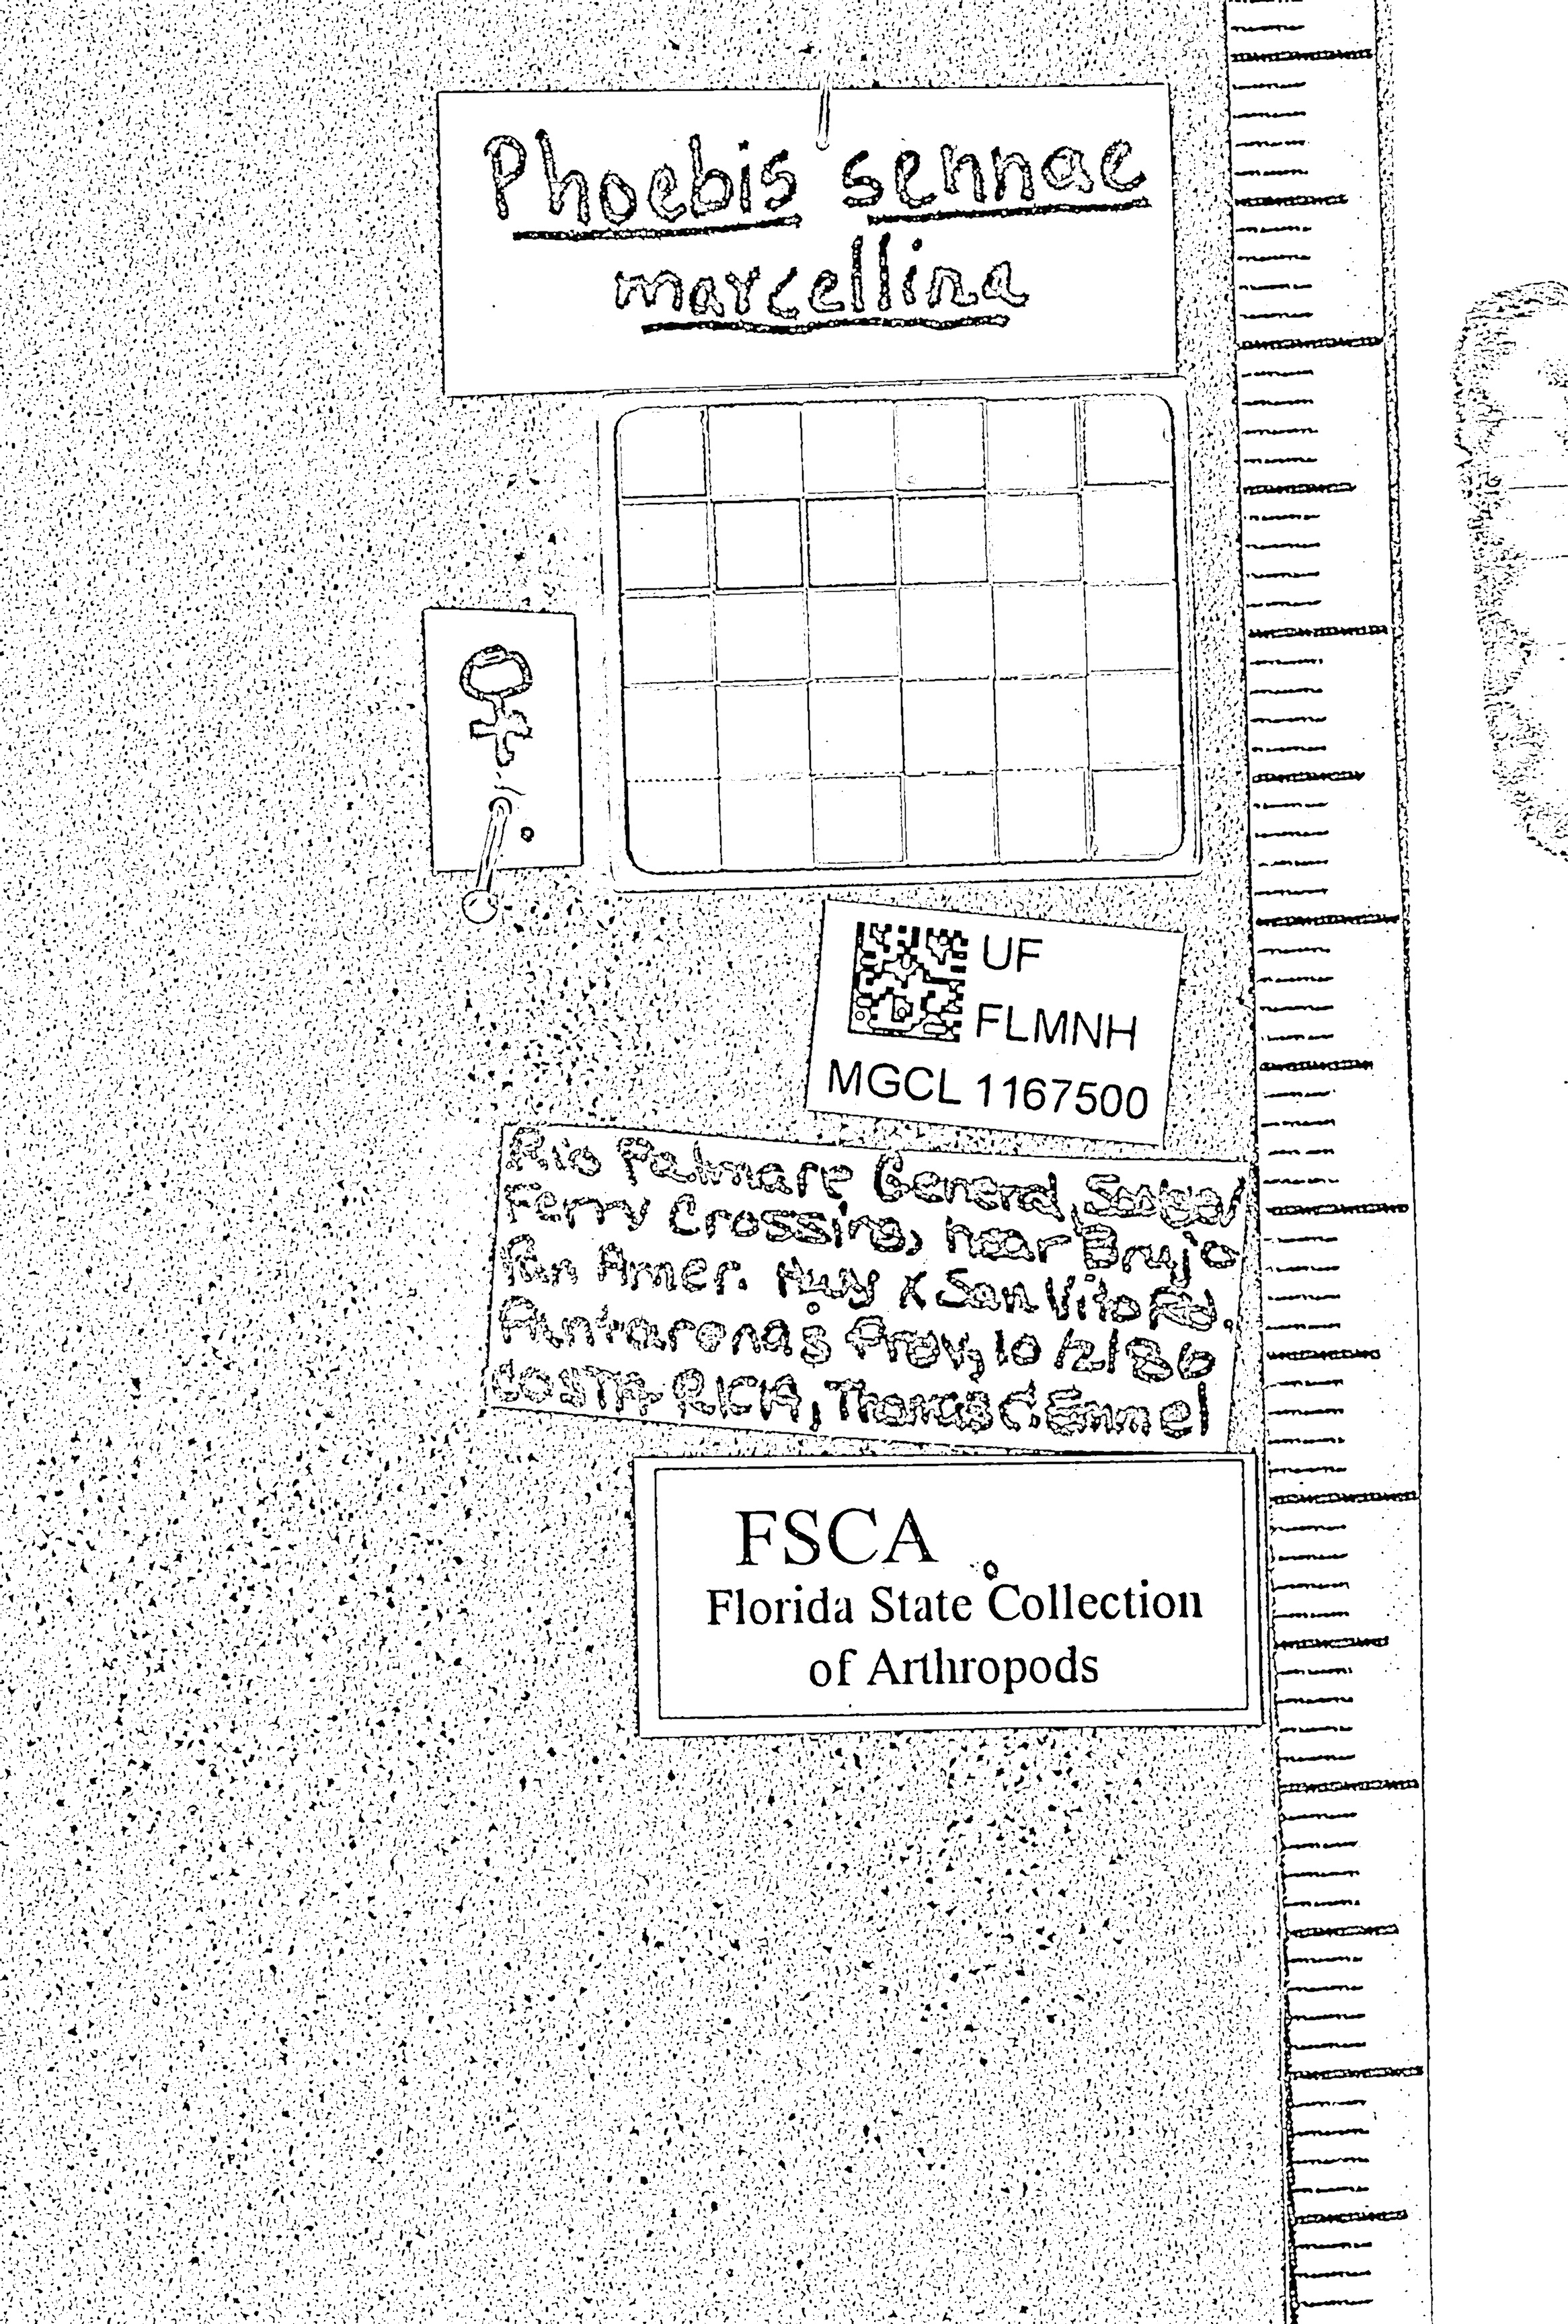 Phoebis sennae
marcellina
♀
UF
FLMNH
MGCL 1167500
Rio Palmare General,
Ferry Crossing, near Brujo
Pan Amer. Hwy X San Vito Rd.
Puntarenas Prov, 10/2/86
COSTA RICA, Thomas C. Emmel
FSCA
Florida State Collection
of Arthropods